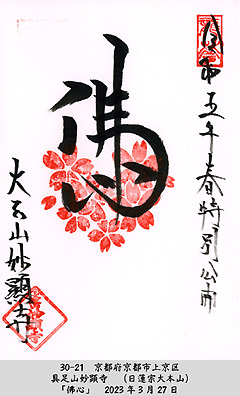 令和五年春特別公開
佛心
大本山妙顯寺
30-21　京都府京都市上京区
具足山妙顕寺　（日蓮宗大本山）
「佛心」　2023年3月27日